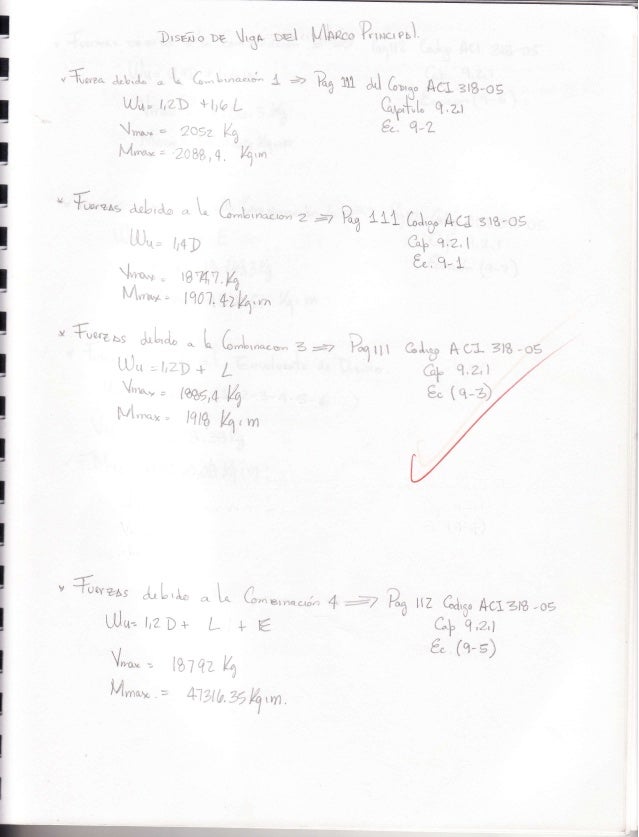 DISEÑO DE VIGA DEL MARCO PRINCIPAL.
Fuerza debido a la Combinación 1 => Pag 111 del Codigo ACI 318-05
Wu= 1,2D + 1,6 L Capitulo 9.2.1
Vmax = 2052 Kg Ec. 9-2
Mmax = 2088,4. Kg.m
* Fuerzas debido a la Combinacion 2 => Pag 111 Codigo ACI 318-05
Wu= 1,4D Cap 9.2.1
Vmax. = 1874,7. Kg Ec. 9-1
Mmax = 1907.42 Kg.m
* Fuerzas debido a la Combinacon 3 => Pag 111 Codigo ACI 318-05
Wu = 1,2D + L Cap 9.2.1
Vmax = 1885,4 Kg Ec (9-3)
Mmax = 1918 Kg.m
* Fuerzas debido a la Combinación 4 => Pag 112 Codigo ACI 318-05
Wu= 1,2 D + L + E Cap 9.2.1
Vmax = 18792 Kg Ec. (9-5)
Mmax. = 47316.35 Kg.m.